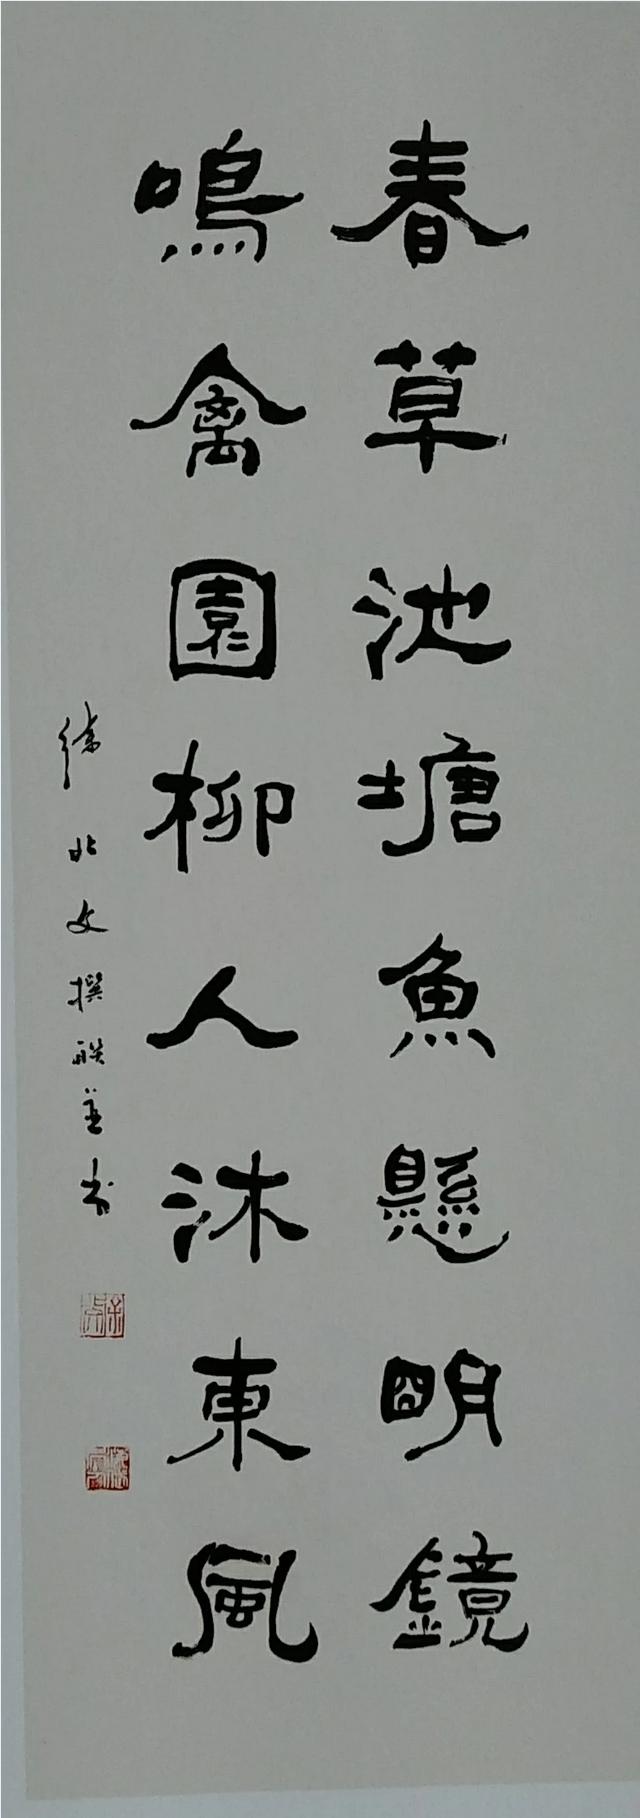 春草池塘魚懸明鏡
鳴禽園柳人沐東風
徐北文撰联并书